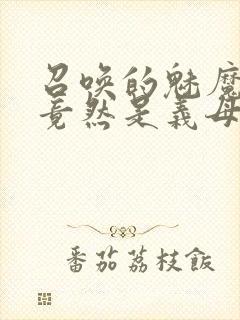 召唤的魅魔
竟然是义母
番茄荔枝飯